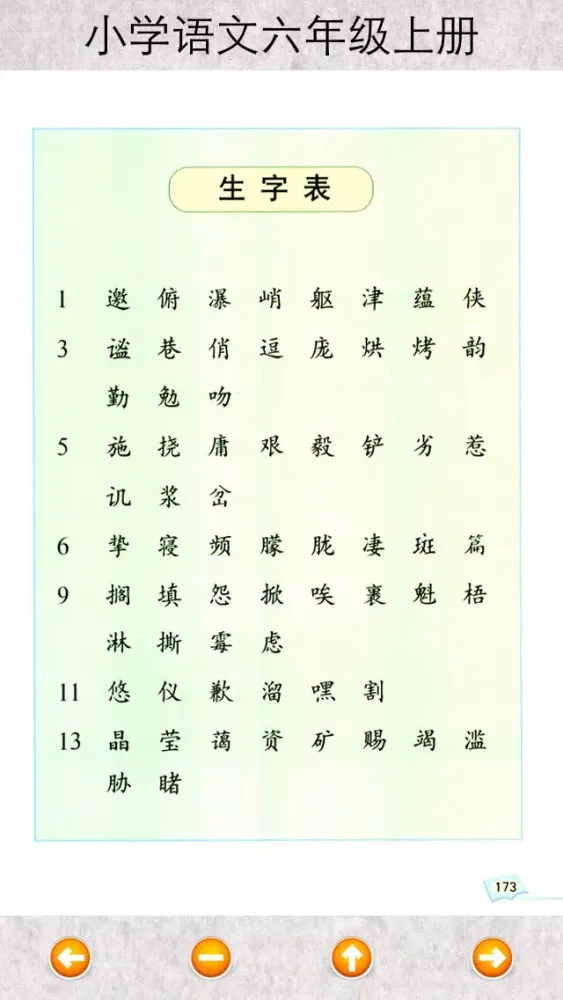 小学语文六年级上册
生字表
1 邀 俯 瀑 峭 躯 津 蕴 侠
3 谧 巷 俏 逗 庞 烘 烤 韵
勤 勉 吻
5 施 挠 庸 艰 毅 铲 劣 惹
讥 浆 岔
6 挚 寝 频 朦 胧 凄 斑 篇
9 搁 填 怨 掀 唉 裹 魁 梧
淋 撕 霉 虑
11 悠 仪 歉 溜 嘿 割
13 晶 莹 蔼 资 矿 赐 竭 滥
胁 睹
173